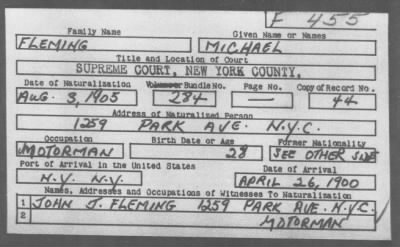 F 455
Family Name Given Name or Names
FLEMING MICHAEL
Title and Location of Court
SUPREME COURT, NEW YORK COUNTY.
Date of Naturalization Volume or Bundle No. Page No. Copy of Record No.
AUG. 3, 1905 284 — 44
Address of Naturalized Person
1259 PARK AVE. N.Y.C.
Occupation Birth Date or Age Former Nationality
MOTORMAN 28 SEE OTHER SIDE
Port of Arrival in the United States Date of Arrival
N.Y. N.Y. APRIL 26, 1900
Names, Addresses and Occupations of Witnesses To Naturalization
1 JOHN J. FLEMING 1259 PARK AVE. N.Y.C.
2 MOTORMAN